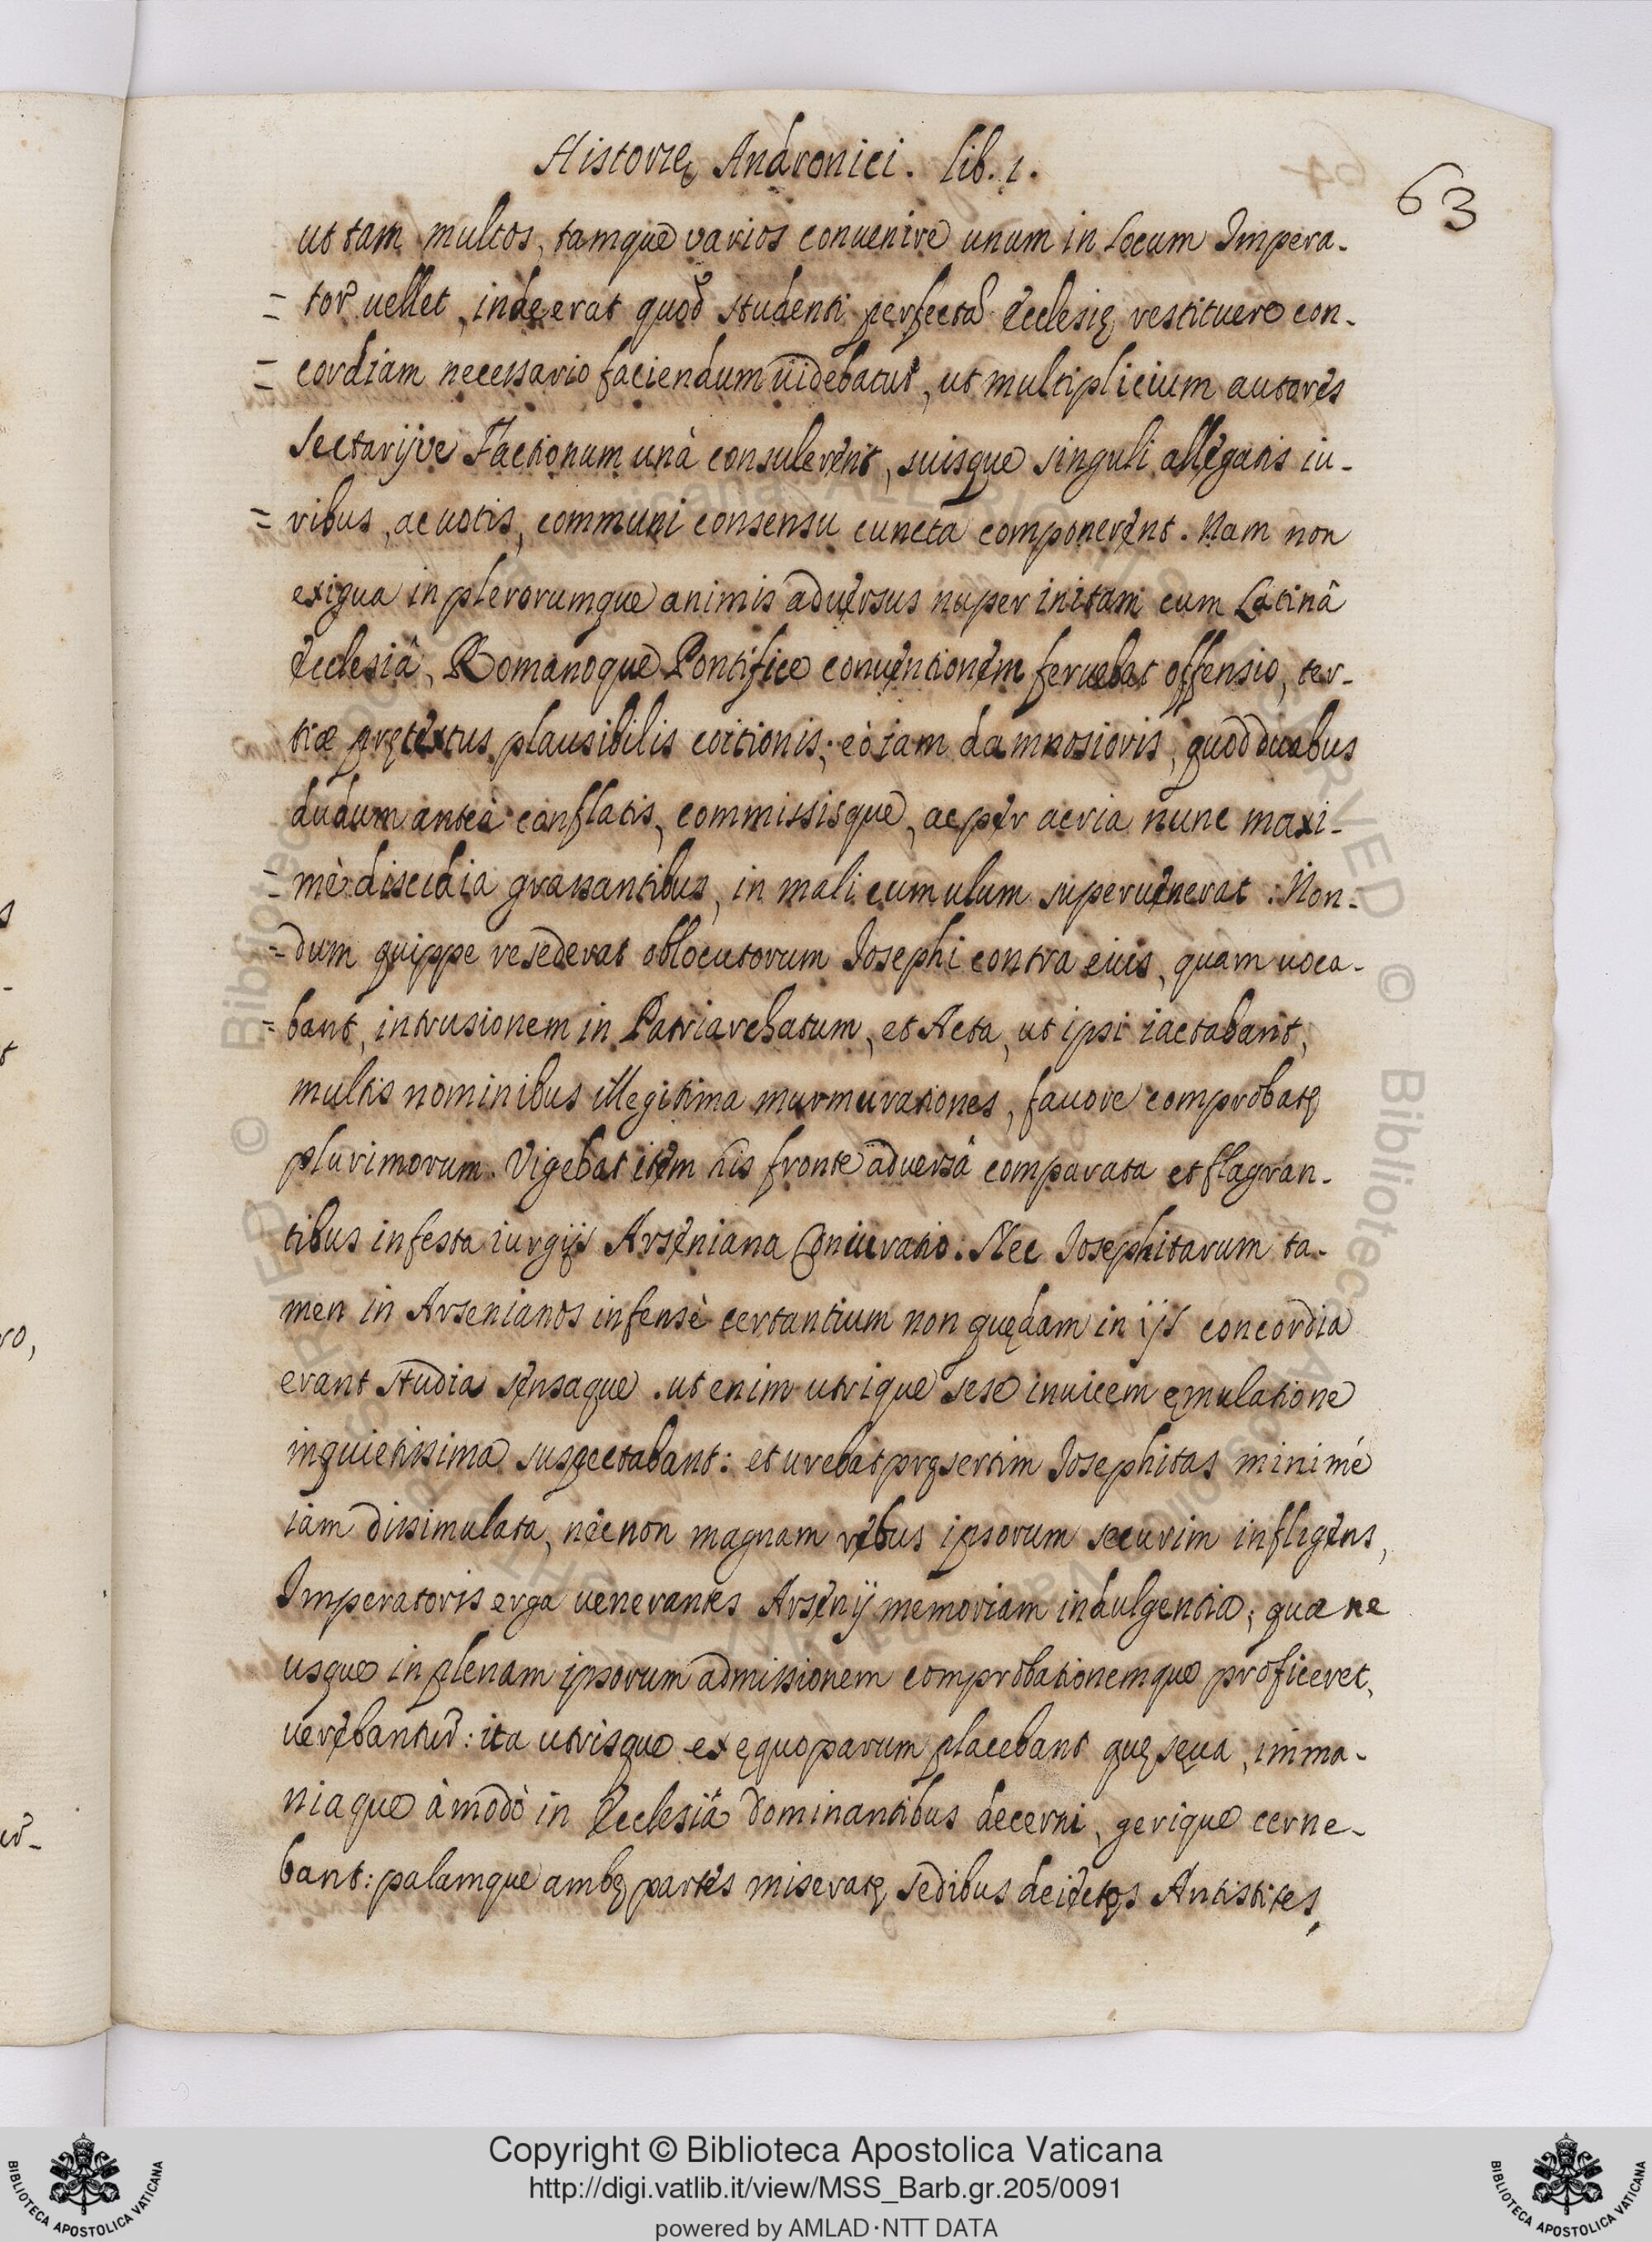 Historię Andronici. lib. 1.
63
ut tam multos, tamque varios conuenire unum in Locum Impera-
= tor uellet, inde erat quod studenti perfectā Ecclesię restituere con-
= cordiam necessario faciendum uidebatur, ut multiplicium autores
Sectarijve Factionum unà consulerent, suisque singuli allegatis iu-
= ribus, ac uotis, communi consensu cuncta componerent. Nam non
exigua in plerorumque animis aduersus nuper initam cum Latinâ
Ecclesiâ, Romanoque Pontifice conuentionem feruebat offensio, ter-
tiæ prętextus plausibilis coitionis; eò iam damnosioris, quod duabus
dudum anteà conflatis, commissisque, ac per acria nunc maxi-
= mè discidia grassantibus, in mali cumulum superuenerat. Non-
= dum quippe resederat oblocutorum Josephi contra eius, quam uoca-
= bant, intrusionem in Patriarchatum, et Acta, ut ipsi iactabant,
multis nominibus illegitima murmurationes, fauore comprobatę
plurimorum. Vigebat item his fronte aduersâ comparata et flagran-
tibus infesta iurgijs Arseniana Coniuratio. Nec Josephitarum ta-
men in Arsenianos infensè certantium non quędam in ijs concordia
erant studia sensaque. ut enim utrique sese inuicem ęmulatione
inquietissima suspectabant: et urebat pręsertim Josephitas minimé
iam dissimulata, nec non magnam rebus ipsorum securim infligens,
Imperatoris erga venerantes Arsenij memoriam indulgentia; quæ ne
usque in plenam ipsorum admissionem comprobationemque proficeret,
uerebantur: ita utrisque ex ęquo parum placebant quę sęua, imma-
niaque à modò in Ecclesiâ dominantibus decerni, gerique cerne-
bant: palamque ambę partes miseratę sedibus deiectos Antistites,
Copyright © Biblioteca Apostolica Vaticana
http://digi.vatlib.it/view/MSS_Barb.gr.205/0091
powered by AMLAD·NTT DATA
BIBLIOTECA APOSTOLICA VATICANA
BIBLIOTECA APOSTOLICA VATICANA